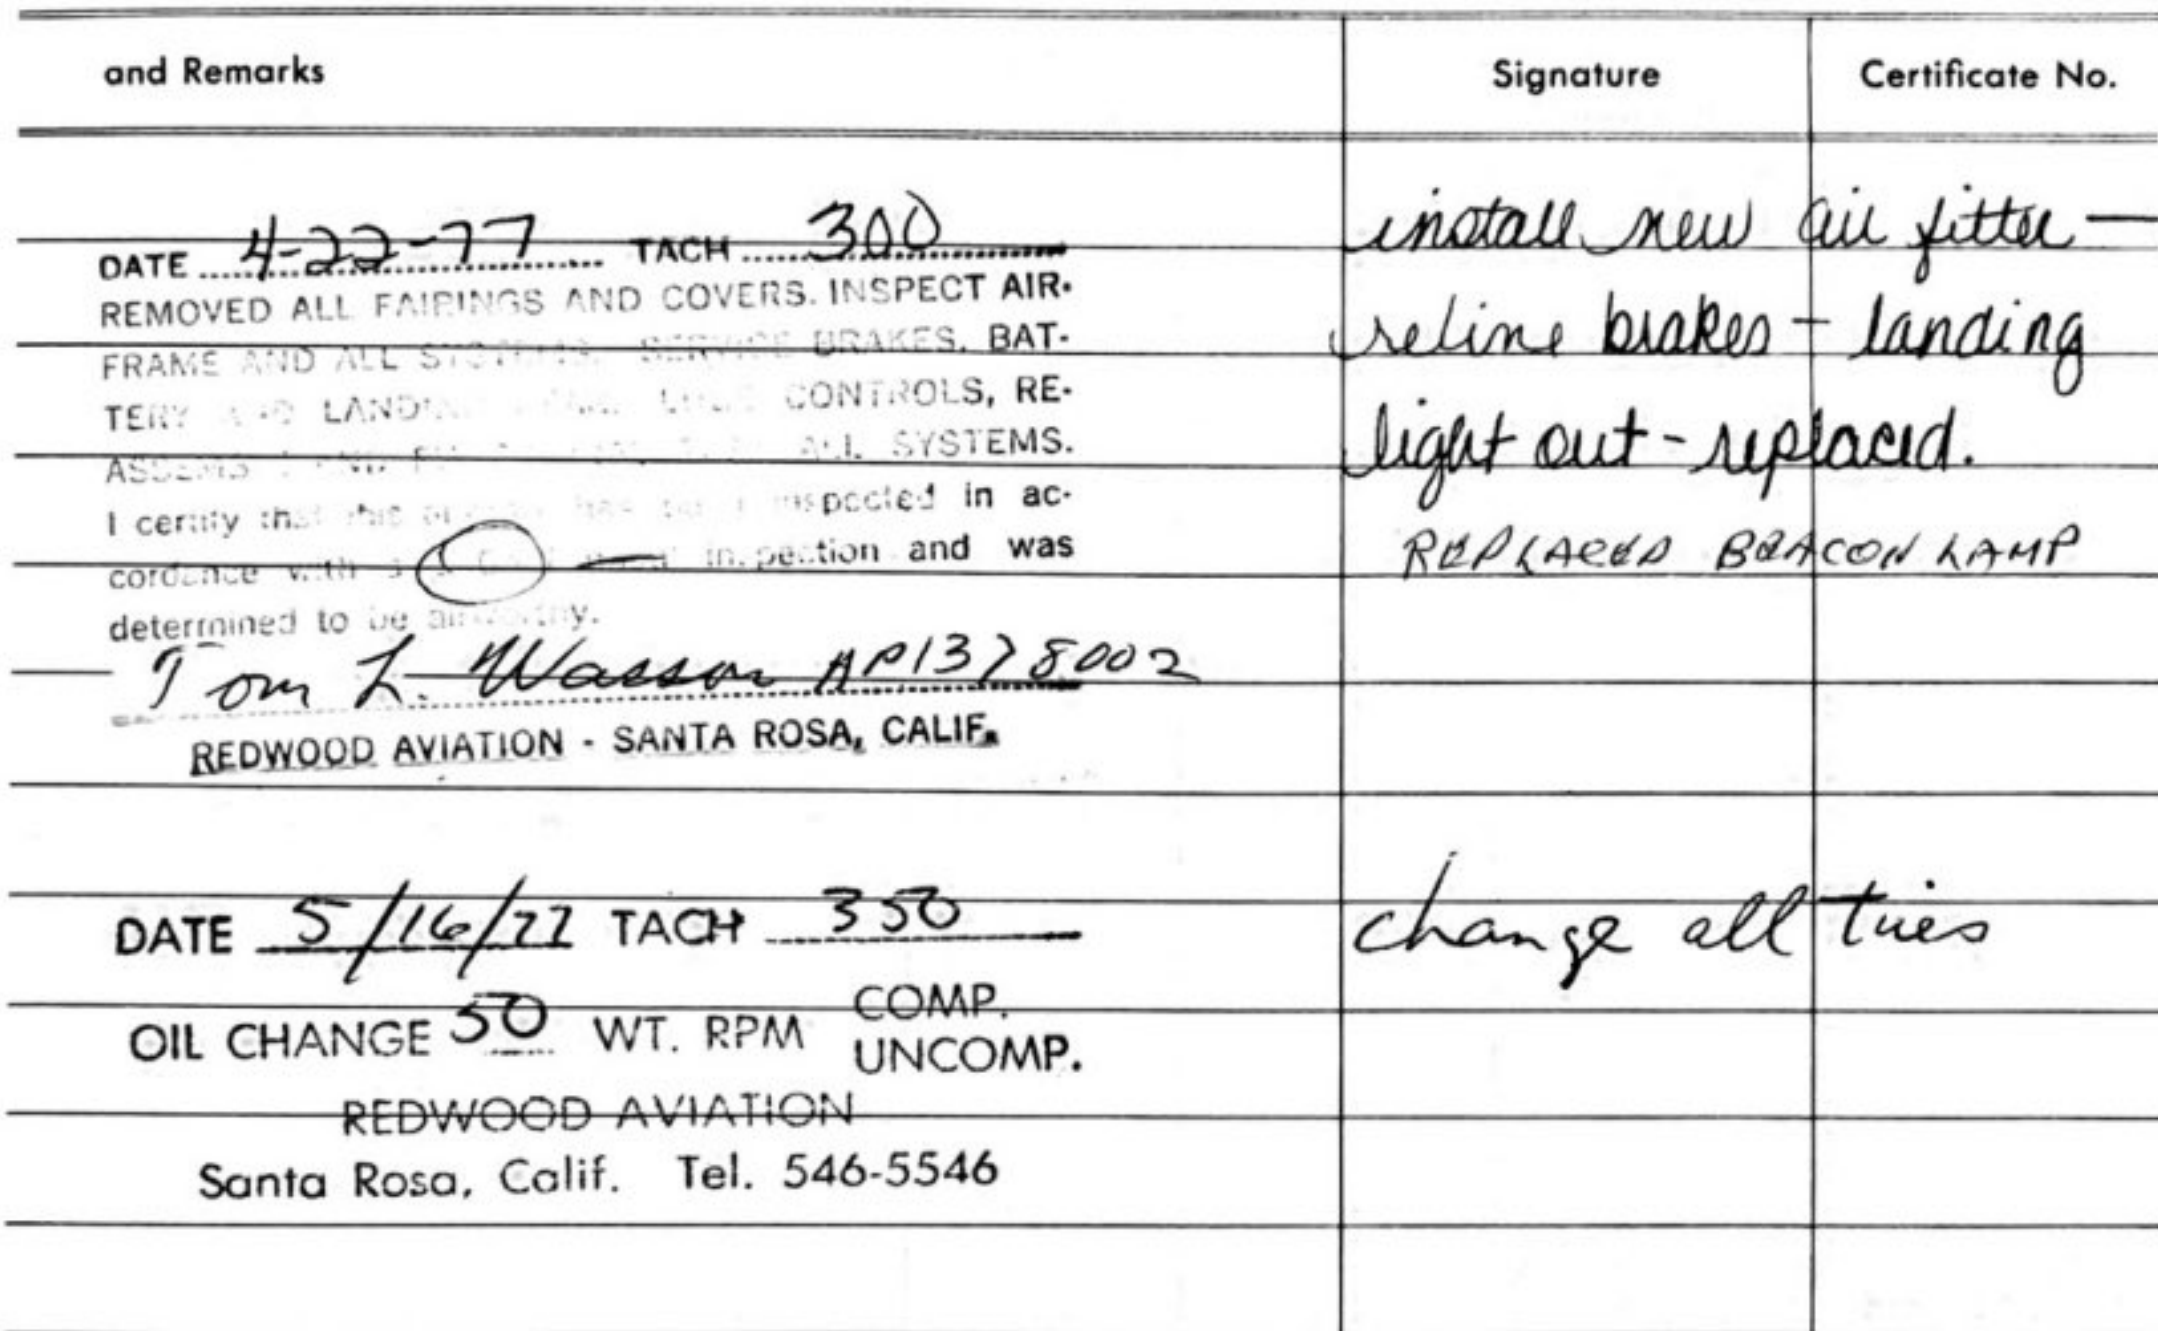 and Remarks
Signature
Certificate No.
DATE 4-22-77 TACH 300
REMOVED ALL FAIRINGS AND COVERS. INSPECT AIR-
FRAME AND ALL SYSTEMS. SERVICE BRAKES, BAT-
TERY AND LANDING GEAR. LUBE CONTROLS, RE-
ALL SYSTEMS.
I certify that this has been inspected in ac-
cordance with a inspection and was
determined to be airworthy.
Tom L. Wasson AP1378002
REDWOOD AVIATION - SANTA ROSA, CALIF.
install new air filter —
reline brakes - landing
light out - replaced.
REPLACED BEACON LAMP
DATE 5/16/77 TACH 350
OIL CHANGE 50 WT. RPM COMP.
UNCOMP.
REDWOOD AVIATION
Santa Rosa, Calif. Tel. 546-5546
change all tires